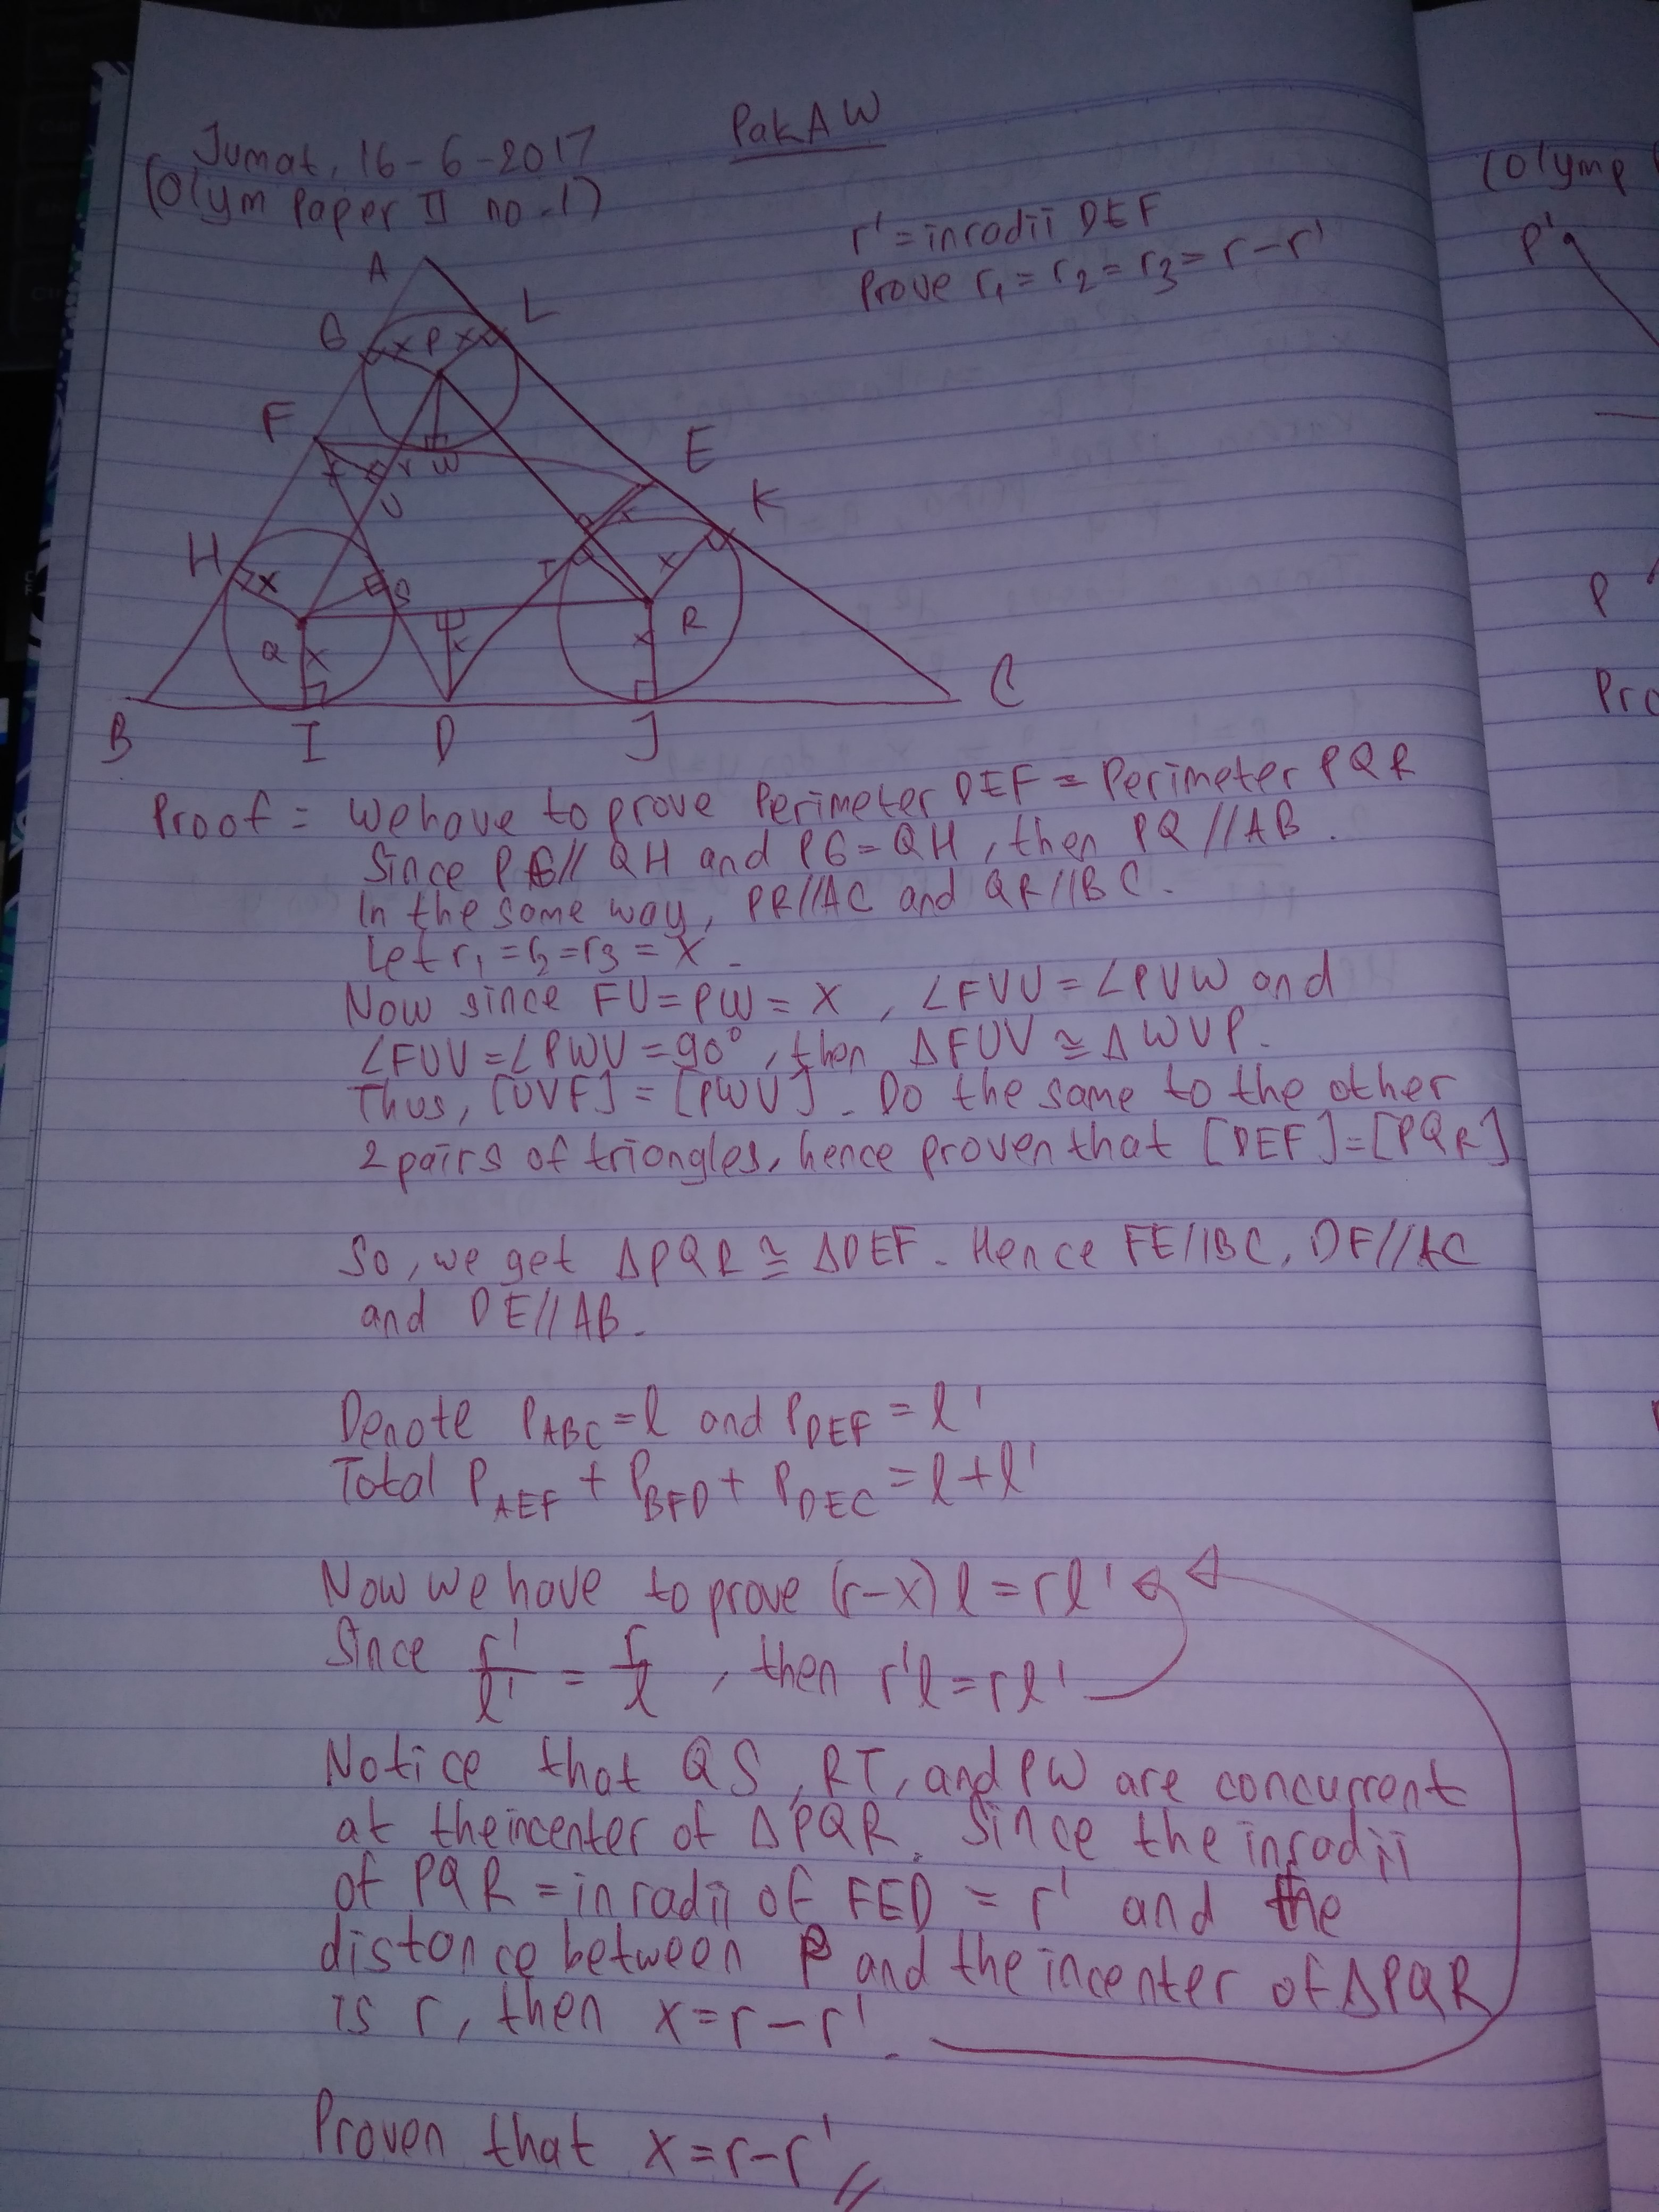 Jumat, 16-6-2017
PakAW
(Olym Paper II no.1)
r' = inradii DEF
Prove r₁ = r₂ = r₃ = r - r'
A
G
L
x P x
F
E
V W
U
K
H
x
S
T
x
R
Q
x
x
x
B
I
D
J
C
Proof = We have to prove Perimeter DEF = Perimeter PQR
Since PG // QH and PG = QH, then PQ // AB.
In the same way, PR//AC and QR//BC.
Let r₁ = r₂ = r₃ = x.
Now since FU = PW = x, ∠FVU = ∠PVW and
∠FUV = ∠PWV = 90°, then ΔFUV ≅ ΔWVP.
Thus, [UVF] = [PWV]. Do the same to the other
2 pairs of triangles, hence proven that [DEF] = [PQR]
So, we get ΔPQR ≅ ΔDEF. Hence FE//BC, DF//AC
and DE//AB.
Denote P_ABC = l and P_DEF = l'
Total P_AEF + P_BFD + P_DEC = l + l'
Now we have to prove (r-x) l = r l'
Since r'/l' = r/l, then r'l = rl'
Notice that QS, RT, and PW are concurrent
at the incenter of ΔPQR. Since the inradii
of PQR = inradii of FED = r' and the
distance between P and the incenter of ΔPQR
is r, then x = r - r'.
Proven that x = r - r' //
(Olymp
P'
P
Pro